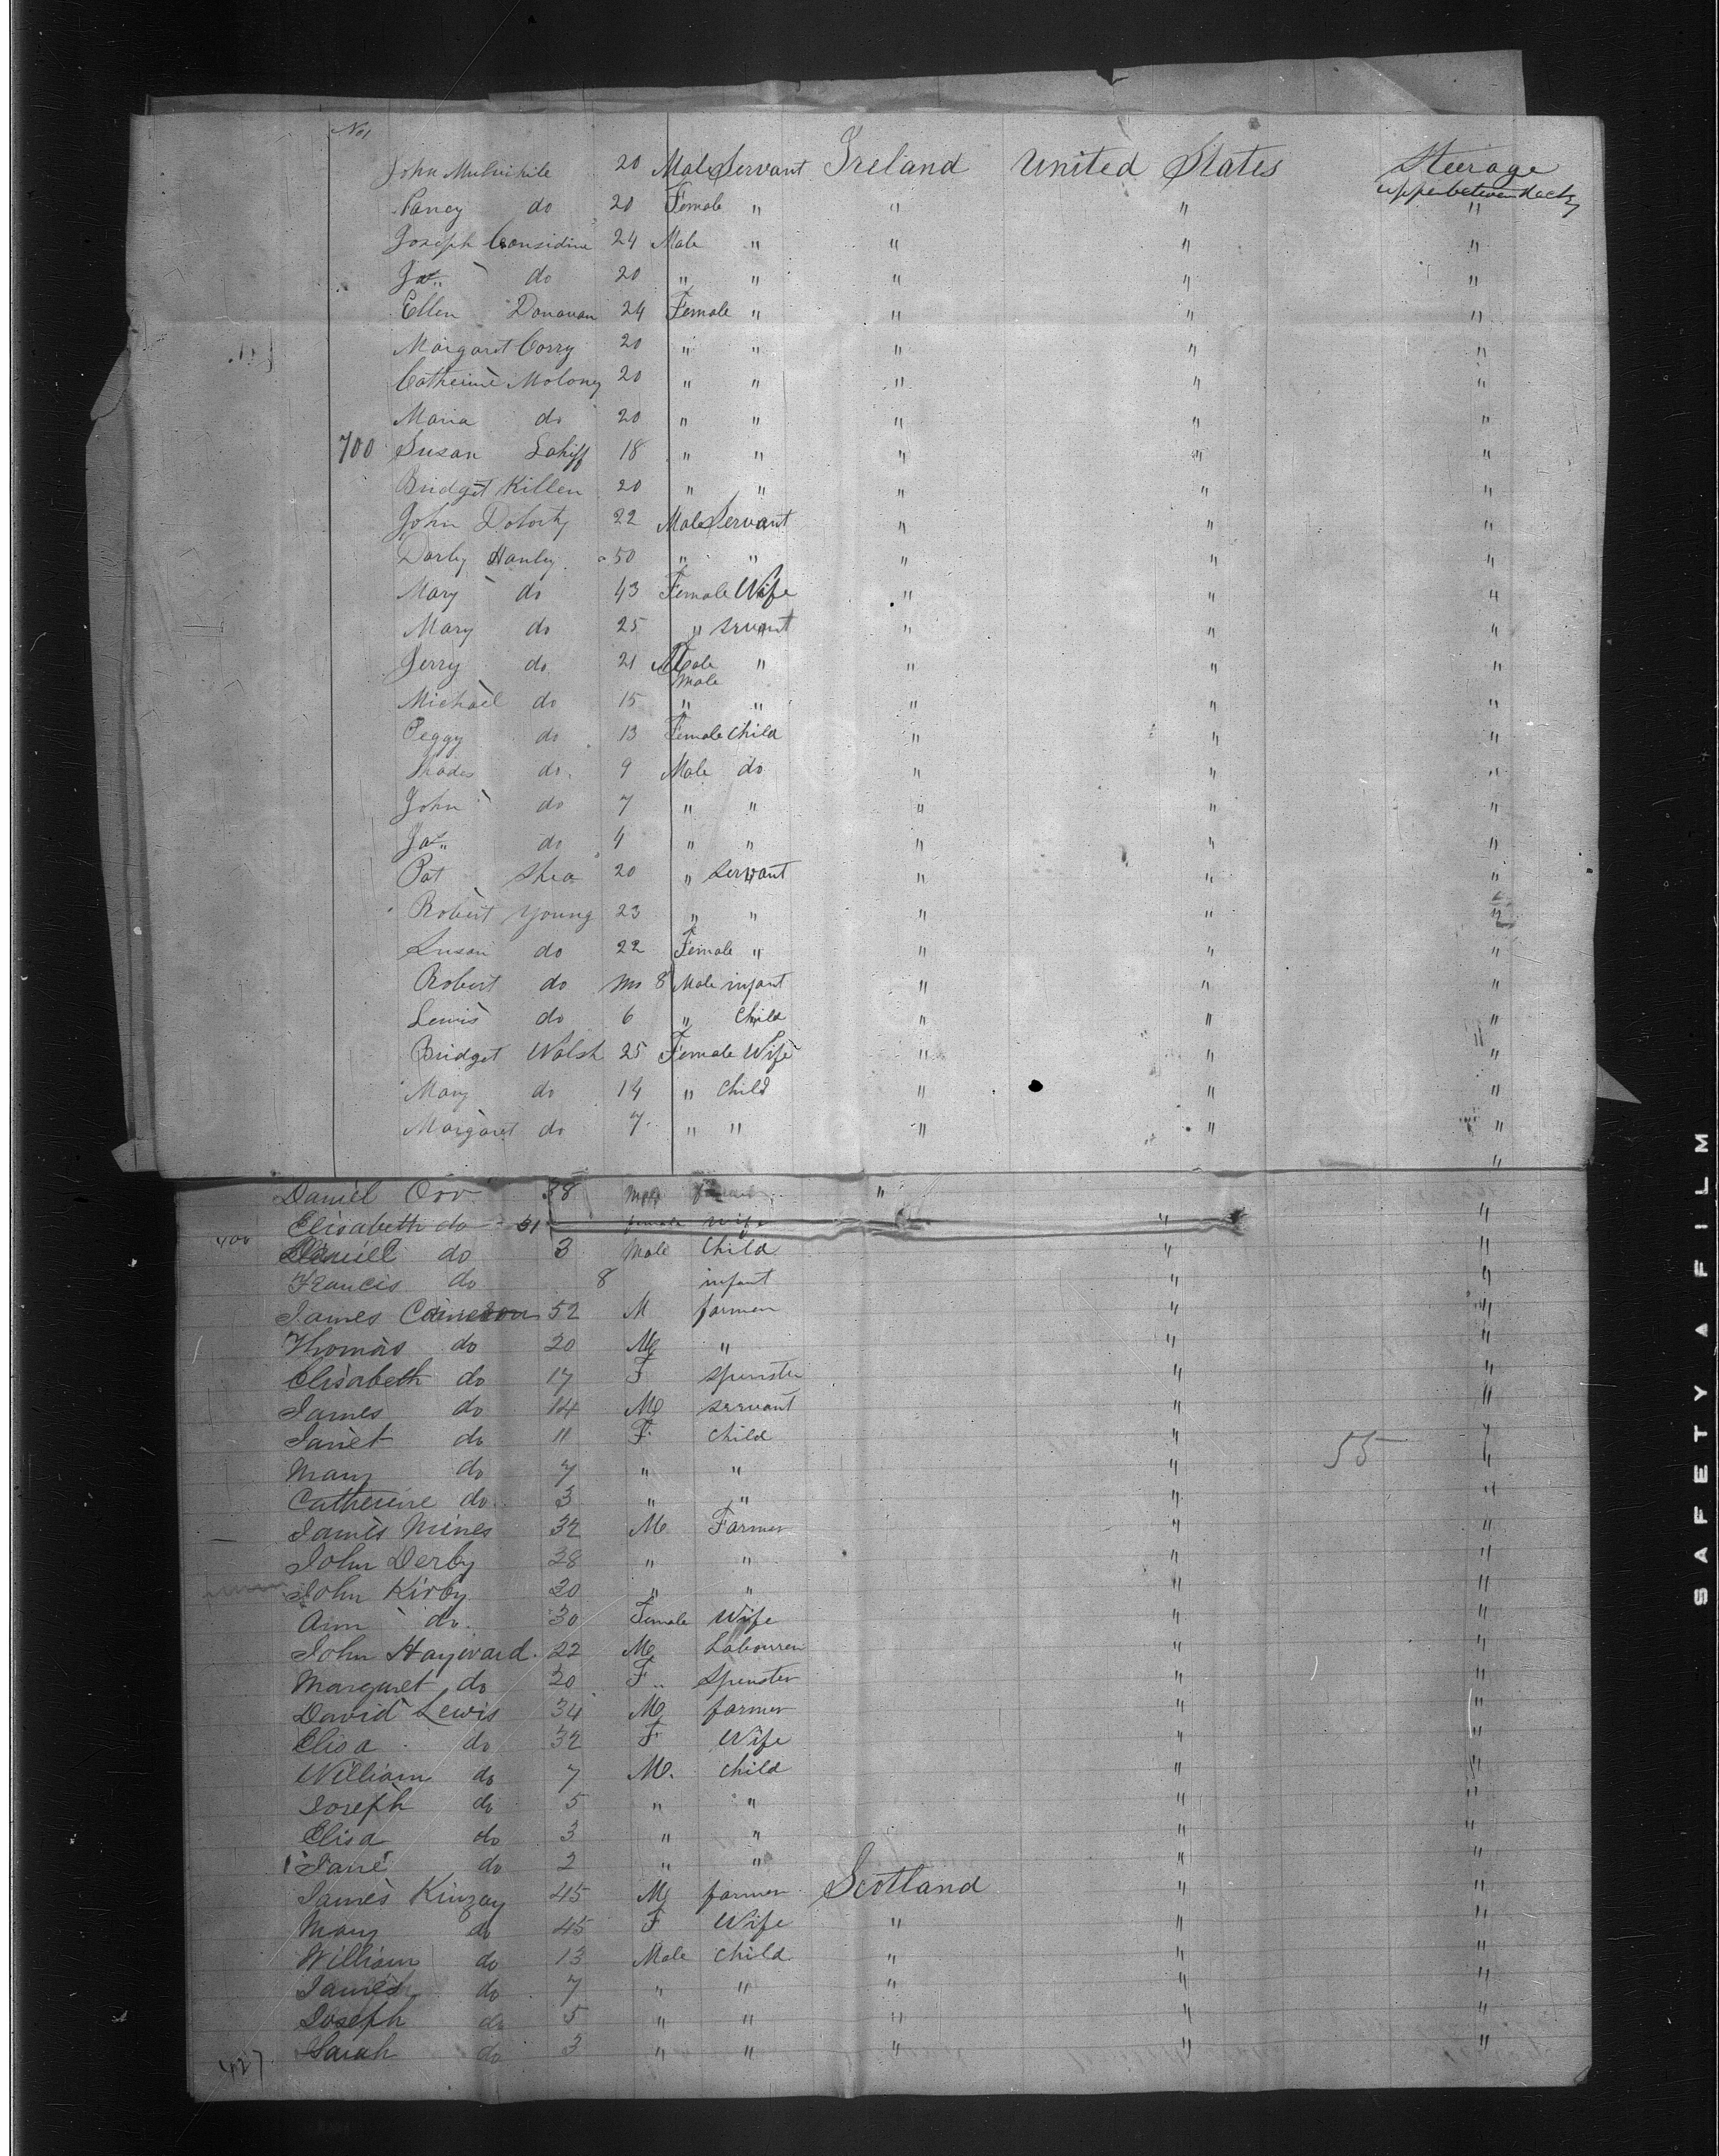 No
John Mulvihile 20 Male Servant Ireland United States Steerage
upper between decks
Nancy do 20 Female " " " "
Joseph Considine 24 Male " " " "
Jas do 20 " " " " "
Ellen Donovan 24 Female " " " "
Margaret Corry 20 " " " " "
Catherine Molony 20 " " " " "
Maria do 20 " " " " "
700 Susan Lahiff 18 " " " " "
Bridget Killen 20 " " " " "
John Doherty 22 Male Servant " " "
Darby Hanley 50 " " " " "
Mary do 43 Female Wife " " "
Mary do 25 " servant " " "
Jerry do 21 Male " " " "
male
Michael do 15 " " " " "
Peggy do 13 Female Child " " "
do 9 Male do " " "
John do 7 " " " " "
Jas do 4 " " " " "
Pat Shea 20 " servant " " "
Robert Young 23 " " " " "
Susan do 22 Female " " " "
Robert do Mo 8 Male infant " " "
Lewis do 6 " Child " " "
Bridget Walsh 25 Female Wife " " "
Mary do 14 " Child " " "
Margaret do 7 " " " " "
"
Daniel Orr 38 Male "
Elisabeth do 31 female wife " "
400 Daniel do 3 Male Child " "
Francis do 8 infant " "
James Cameron 52 M farmer " "
Thomas do 20 M " " "
Elisabeth do 17 F spinster " "
James do 14 M servant " "
Janet do 11 F Child " "
55
Mary do 7 " " " "
Catherine do 3 " " " "
James Mines 32 M Farmer " "
John Derby 28 " " " "
John Kirby 30 " " " "
Ann do 30 Female Wife " "
John Hayward 22 M Labourer " "
Margaret do 20 F Spinster " "
David Lewis 34 M farmer " "
Elisa do 32 F Wife " "
William do 7 M. Child " "
Joseph do 5 " " " "
Elisa do 3 " " " "
Jane do 2 " " " "
James Kinzay 45 M farmer Scotland " "
Mary do 45 F Wife " " "
William do 13 Male Child " " "
James do 7 " " " " "
Joseph do 5 " " " " "
Sarah do 3 " " " " "
427
SAFETY A FILM